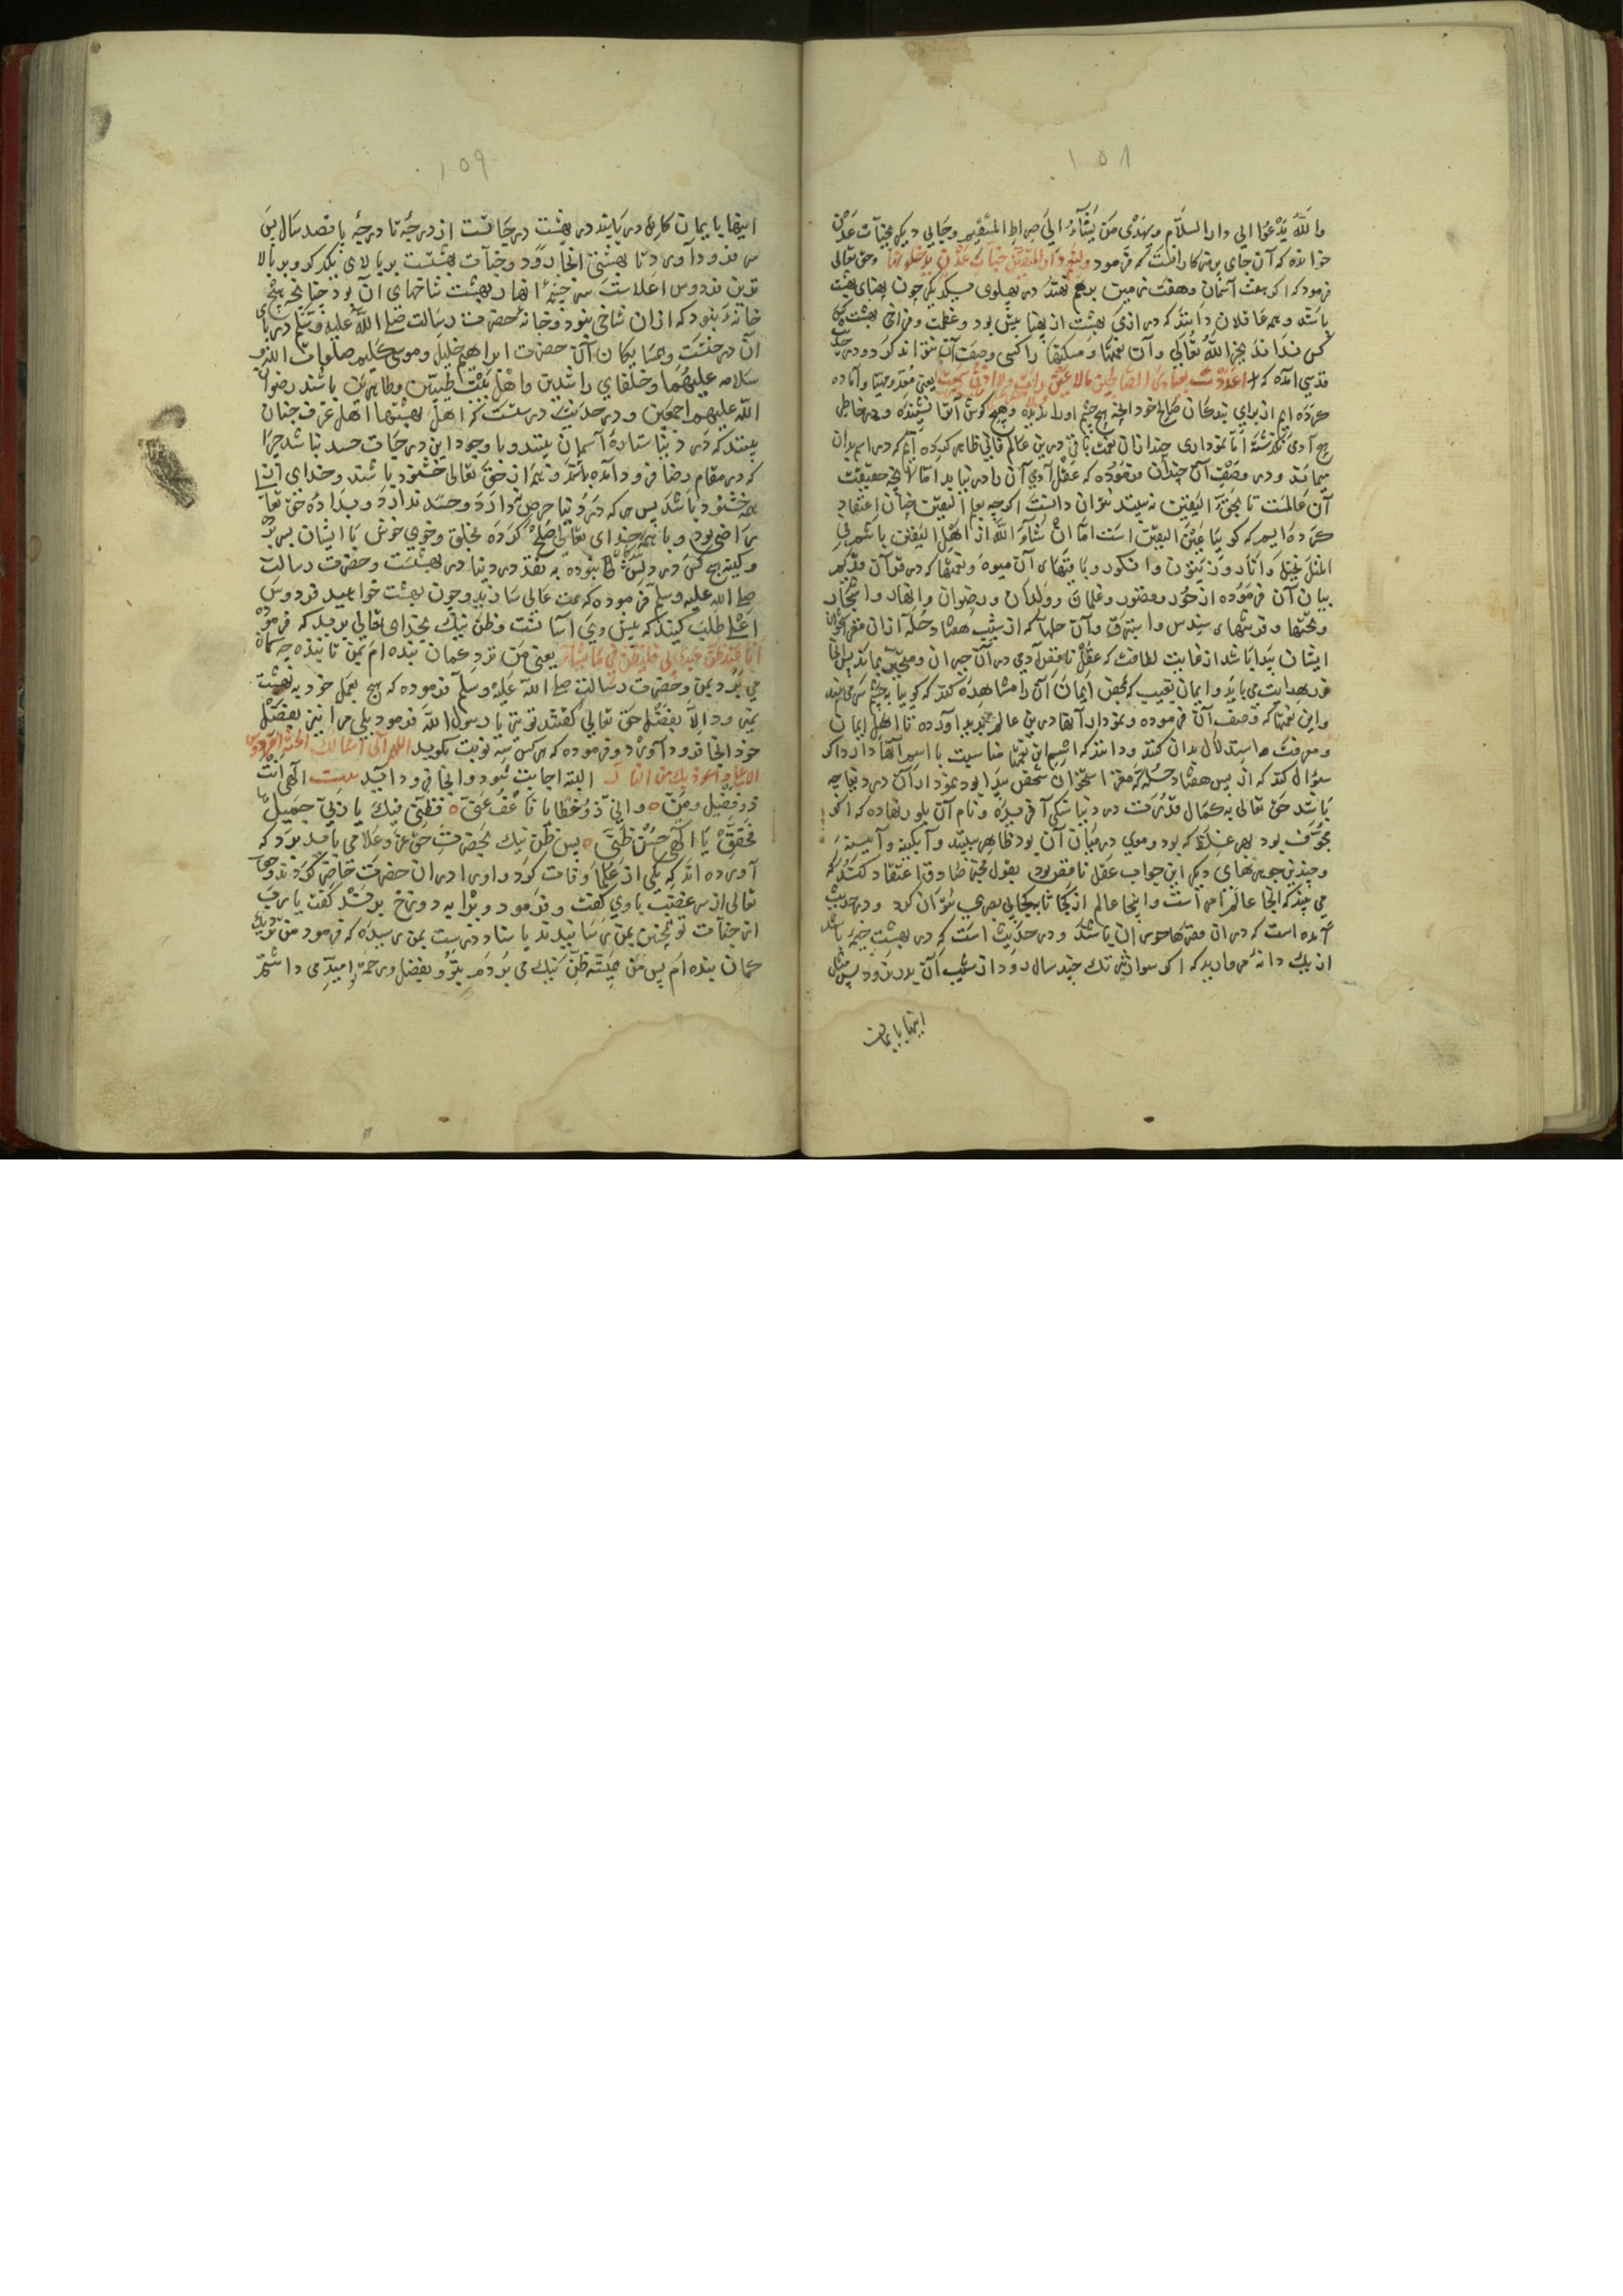 ۱۵۸
والله یدعوا الی دار السلام ویهدی من یشاء الی صراط المستقیم وجایی دیگر بجنات عدن
خوانده که آن جای پرهیزکارانست که فرمود ولنعم دار المتقین جنات عدن یدخلونها وحق تعالی
فرمود که اگر هفت آسمان وهفت زمین برهم نهند در پهلوی یکدیگر چون پهنای بهشت
باشد وهمه عاقلان دانند که درازی بهشت از پهنا بیش بود وعظمت وفراخی بهشت
کس نداند بجز الله تعالی وآن نعمتها ومسکنها را کسی وصف آن نتواند کرد ودر حدیث
قدسی آمده که اعددت لعبادی الصالحین ما لا عین رات ولا اذن سمعت یعنی مقدر ومهیا وآماده
کرده ایم از برای بندکان صالح خود آنچه هیچ چشم او را ندیده وهیچ گوش آنرا نشنیده ودر خاطر
هیچ آدمی نگذشته اما نموداری چند ازان نعمت باقی درین عالم فانی ظاهر کرده ایم که در اسم بدان
میماند ودر وصف آن چندان فرموده که عقل آدمی آن را در نیابد اما آنچه حقیقت
آن عالمست تا بحق الیقین نه بیند نتوان دانست اگرچه بعلم الیقین چنان اعتقاد
کرده ایم که گویا عین الیقین است اما ان شاء الله از اهل الیقین باشیم
بیان آن فرموده از حور وقصور وغلمان وولدان ورضوان وانهار واشجار
ایشان پیدا باشد از غایت لطافت که عقل ناقص آدمی در آن حیران ومتحیر بماند پس آنجا
نور هدایت می باید وایمان بغیب که بمحض ایمان آن را مشاهده کند که گویا به چشم سر می بیند
واین نعمتها که وصف آن فرموده ونمودار آنها درین عالم پدید آورده تا اهل ایمان
ومعرفت استدلال بدان کنند ودانند که اسم این نعمتها مناسبت با اسم آنها دارد اگر
سؤال کند که از پس هفتاد حله که مغز استخوان شخص پیدا بود نمودار آن در دنیا چه
باشد حق تعالی به کمال قدرت در دنیا سنگی آفریده ونام آن بلور نهاده که اگر
مجوف بود بهر غلظ که بود وموی در میان آن بود ظاهر ببیند وآبگینه وآیینه
وچندین جوهرهای دیگر این جواب عقل ناقص بود بقول مخبر صادق اعتقاد کند که
می بیند که آنجا عالم امر است واینجا عالم
آمده است که در ان قصرها حوریان باشند ودر حدیث است که در بهشت خیمه باشد
از یک دانه مروارید که اگر سواری تند تک چند سال دود از شیب آن بدر نرود پس مثال
اینها بایمان
۱۵۹
اینها بایمان کار در یابند در بهشت درجاتست از درجه تا درجه پانصد سال پس
سر فرود آورد تا بهشتی آنجا رود وجنات بهشت بر بالای یکدیگر وبر بالا
ترین فردوس اعلاست سر چشمه انهار بهشت شاخهای آن بود چنانچه هیچ
خانه نبود که ازان شاخی نبود وخانه حضرت رسالت صلی الله علیه وسلم در پای
آن درختست وهمسایکان آن حضرت ابراهیم خلیل وموسی کلیم صلوات الله و
سلامه علیهما وخلفای راشدین واهل بیت طیبین وطاهرین باشند رضوان
الله علیهم اجمعین ودر حدیث درست که اهل بهشتها اهل غرف جنان
بینند که در دنیا ستاره آسمان بینند وبا وجود این درجات حسد نباشد چرا
که در مقام رضا فرود آمده باشند وهم از حق تعالی خشنود باشند وخدای از
همه خشنود باشد پس هر که در دنیا حرص ندارد وحسد ندارد وبداده حق تعالی
راضی بود وبا همه خدای تعالی صلح کرده بخلق وخوی خوش با ایشان بسر برد
وکینه هیچ کس در دلش نبوده به نقد در دنیا در بهشتست وحضرت رسالت
صلی الله علیه وسلم فرموده که همت عالی سازید وچون بهشت خواهید فردوس
اعلی طلب کنید که بیش وی آسانست وظن نیک بخدای تعالی برید که فرموده
انا عند ظن عبدی بی فلیظن بی ما شاء یعنی من نزد گمان بنده ام بمن تا بنده چه گمان
می برد بمن وحضرت رسالت صلی الله علیه وسلم فرموده که هیچ بعمل خود به بهشت
نمی رود الا بفضل حق تعالی گفتند تو نیز یا رسول الله فرمود بلی مرا نیز بفضل
خود آنجا فرود آورد وفرموده که هر کس سه نوبت بگوید اللهم انی اسالک الجنة الفردوس
الاعلی واعوذ بک من النار البته اجابت شود وآنجا فرود آید بیت الهی انت
ذو فضل ومن ٥ وانی ذو خطایا فاعف عنی ٥ فظنی فیک یا ربی جمیل
فحقق یا الهی حسن ظنی ٥ پس ظن نیک بحضرت حق عز وعلا می باید برد که
آورده اند که یکی از علما وفات کرد واو را در ان حضرت حاضر کردند وحق
تعالی از سر غضب با وی گفت وفرمود ویرا به دوزخ برند گفت یا رب
از جنات تو بمن رسانیدند باسناد درست بمن رسیده که فرمود من نزدیک
گمان بنده ام پس من همیشه ظن نیک می بردم بتو وبفضل ورحمت تو امید می داشتم